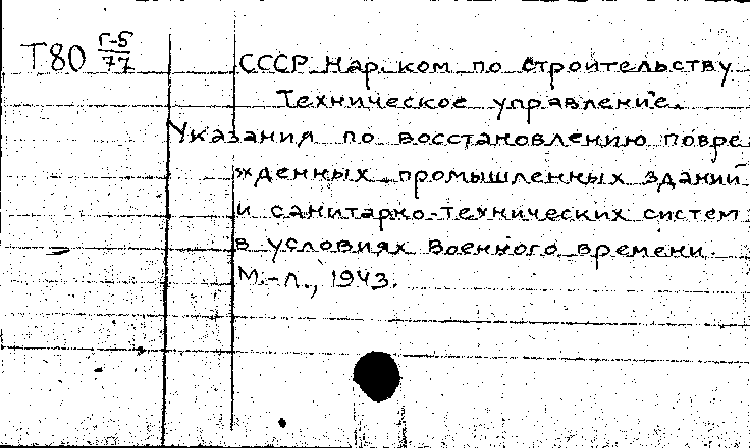 Т80 Г-5/77
СССР Нар. ком по строительству
Техническое управление.
Указания по восстановлению повре
жденных промышленных зданий
и санитарно-технических систем
в условиях Военного времени.
М.-Л., 1943.